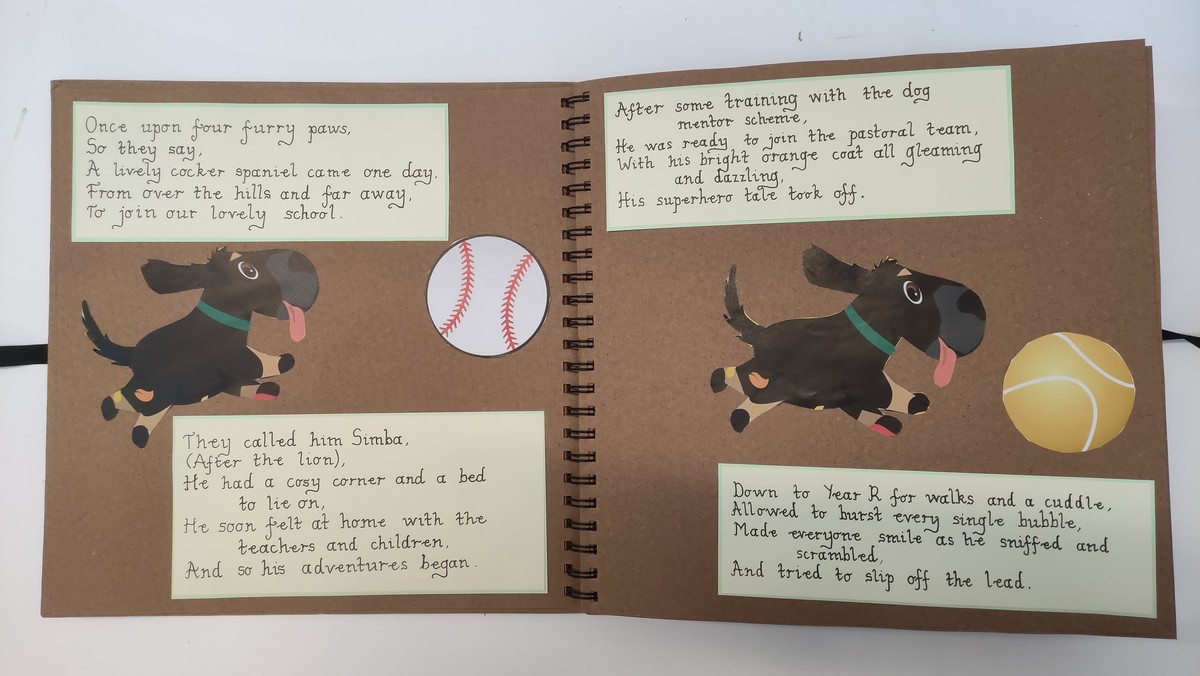 Once upon four furry paws,
So they say,
A lively cocker spaniel came one day,
From over the hills and far away,
To join our lovely school.
They called him Simba,
(After the lion),
He had a cosy corner and a bed
to lie on,
He soon felt at home with the
teachers and children,
And so his adventures began.
After some training with the dog
mentor scheme,
He was ready to join the pastoral team,
With his bright orange coat all gleaming
and dazzling,
His superhero tale took off.
Down to Year R for walks and a cuddle,
Allowed to burst every single bubble,
Made everyone smile as he sniffed and
scrambled,
And tried to slip off the lead.